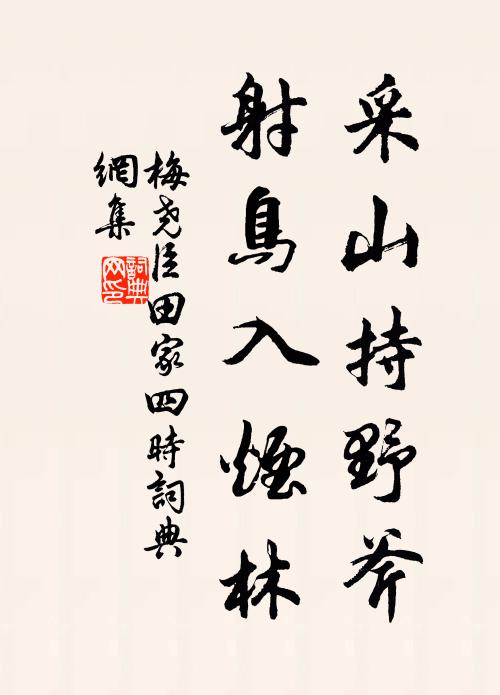 采山持野斧
射鳥入煙林
梅尧臣田家四時詞典
網集
詞典
网印